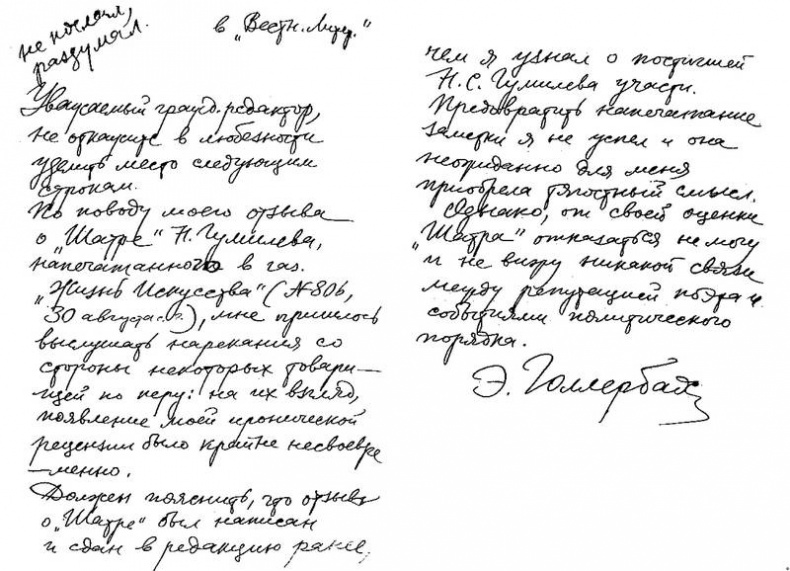 не послал,
раздумал.
в „Вестн. Литер."
Уважаемый гражд. редактор,
не откажите в любезности
уделить место следующим
строкам.
По поводу моего отзыва
о „Шатре" Н. Гумилева,
напечатанного в газ.
„Жизнь Искусства" (№ 806,
30 августа с.г.), мне пришлось
выслушать нарекания со
стороны некоторых товари-
щей по перу: на их взгляд,
появление моей иронической
рецензии было крайне несвоевре
—менно.
Должен пояснить, что отзыв
о „Шатре" был написан
и сдан в редакцию ранее,
чем я узнал о постигшей
Н. С. Гумилева участи.
Предотвратить напечатание
заметки я не успел и она
неожиданно для меня
приобрела тягостный смысл.
Однако, от своей оценки
„Шатра" отказаться не могу
и не вижу никакой связи
между репутацией поэта и
событиями политического
порядка.
Э. Голлербах